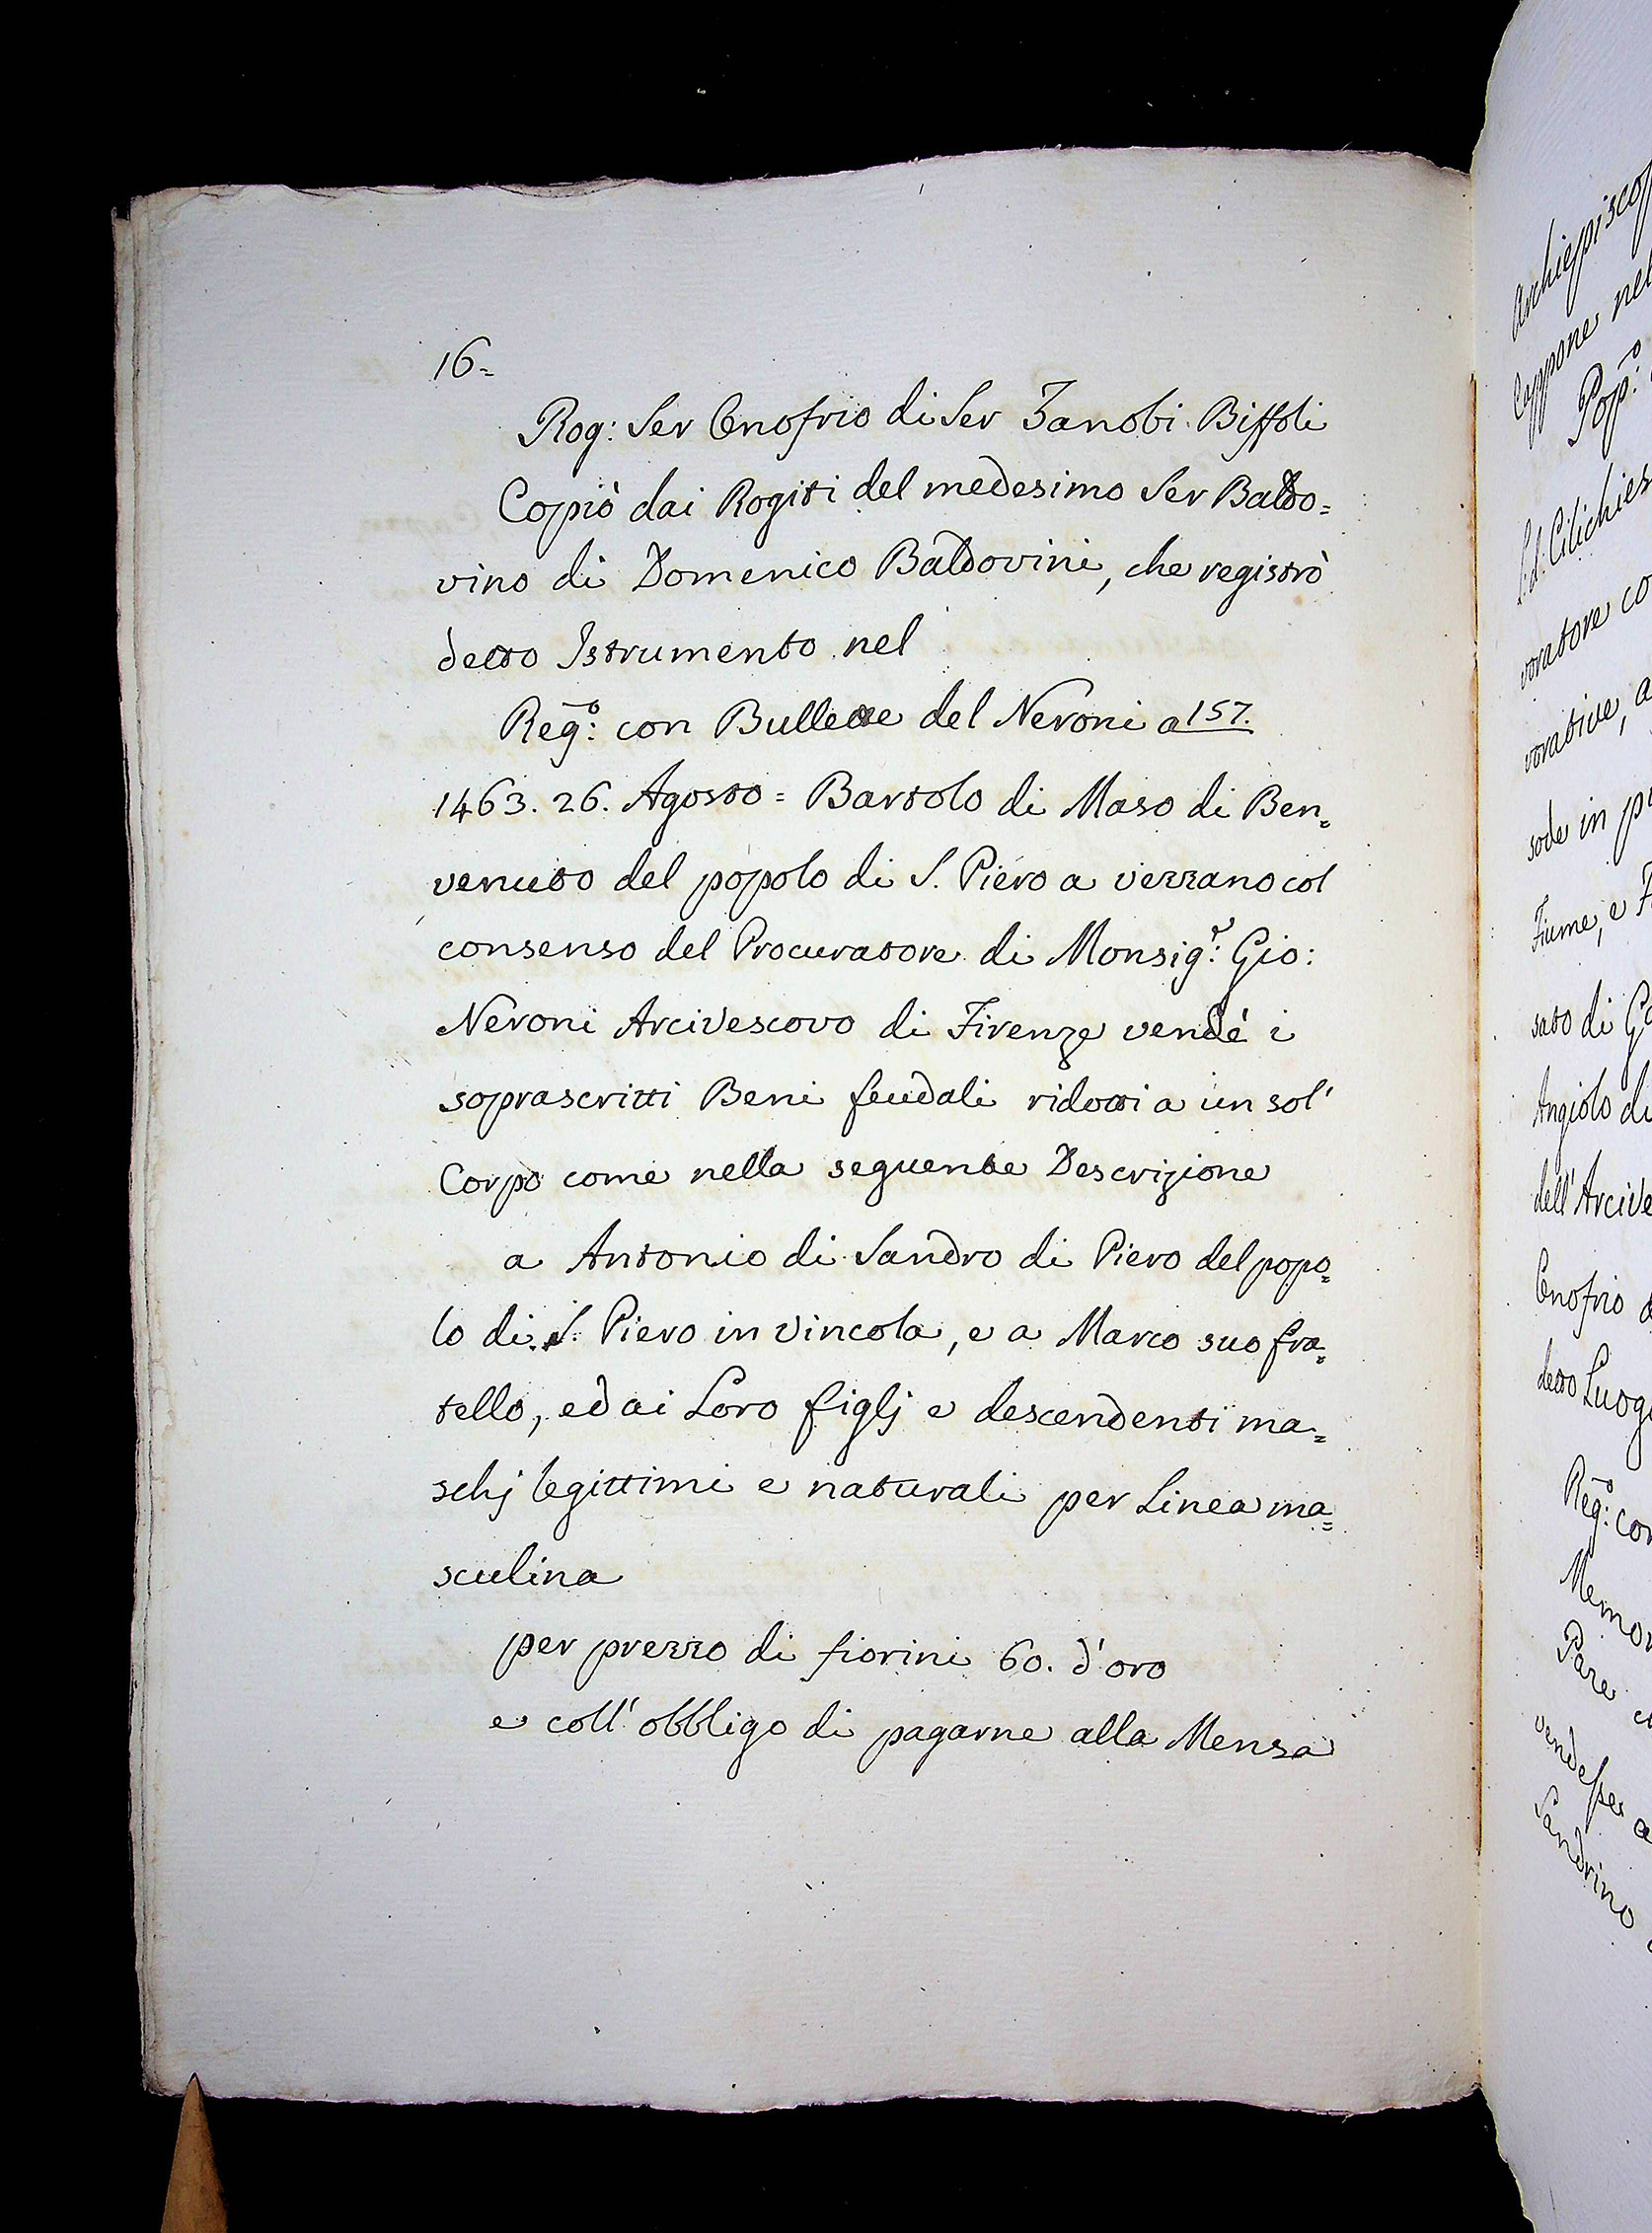 16=
Rog: Ser Onofrio di Ser Zanobi Biffoli
Copiò dai Rogiti del medesimo Ser Baldo=
vino di Domenico Baldovini, che registrò
detto Istrumento nel
Reg:º con Bullette del Neroni a 157.
1463. 26. Agosto = Bartolo di Maso di Ben=
venuto del popolo di S. Piero a verzano col
consenso del Procuratore di Monsig:r Gio:
Neroni Arcivescovo di Firenze vendé i
soprascritti Beni feudali ridotti a un sol'
Corpo come nella seguente Descrizione
a Antonio di Sandro di Piero del popo=
lo di S. Piero in Vincola, e a Marco suo fra=
tello, ed ai Loro figlj e descendenti ma=
schj legittimi e naturali per Linea ma=
sculina
per prezzo di fiorini 60. d'oro
e coll' obbligo di pagarne alla Mensa
Cappone nel
Pop:º
voratore
vorative, a
sode in
Fiume, e
sato di
Angiolo di
dell'
Onofrio
detto
Reg:º
Pare
vendesse a
Sandrino